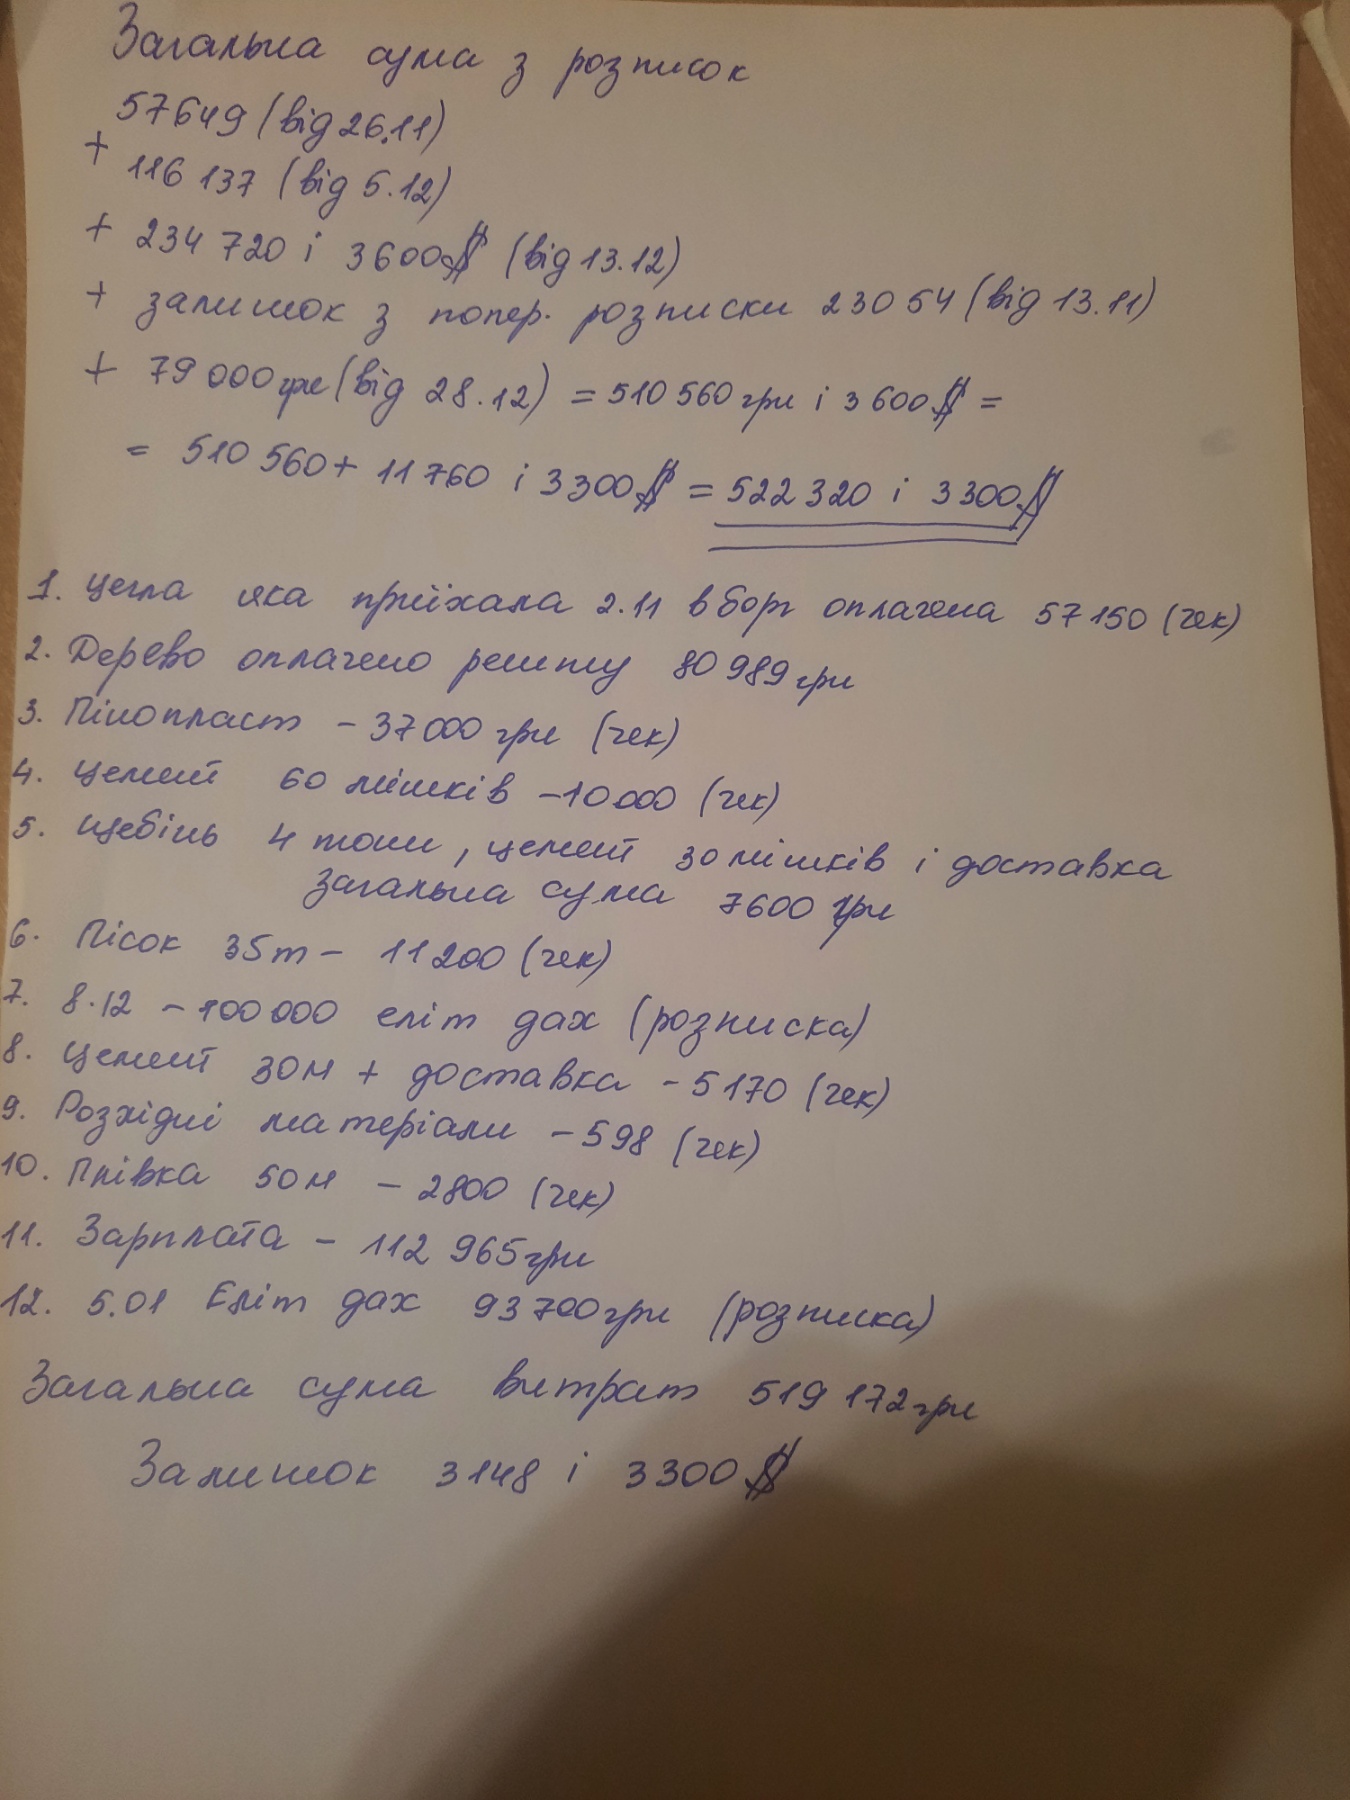 Загальна сума з розписок
57649 (від 26.11)
+
116 137 (від 5.12)
+ 234 720 і 3600$ (від 13.12)
+ залишок з попер. розписки 23054 (від 13.11)
+ 79 000 грн (від 28.12) = 510 560 грн і 3 600$ =
= 510 560 + 11 760 і 3300$ = 522 320 і 3300$
1. Цегла яка приїхала 2.11 в борг оплачена 57150 (чек)
2. Дерево оплачено решту 80 989 грн
3. Пінопласт – 37000 грн (чек)
4. Цемент 60 мішків – 10000 (чек)
5. Щебінь 4 тони, цемент 30 мішків і доставка
загальна сума 7600 грн
6. Пісок 35т – 11200 (чек)
7. 8.12 – 100 000 еліт дах (розписка)
8. Цемент 30м + доставка – 5170 (чек)
9. Розхідні матеріали – 598 (чек)
10. Плівка 50м – 2800 (чек)
11. Зарплата – 112 965 грн
12. 5.01 Еліт дах 93700 грн (розписка)
Загальна сума витрат 519 172 грн
Залишок 3148 і 3300$